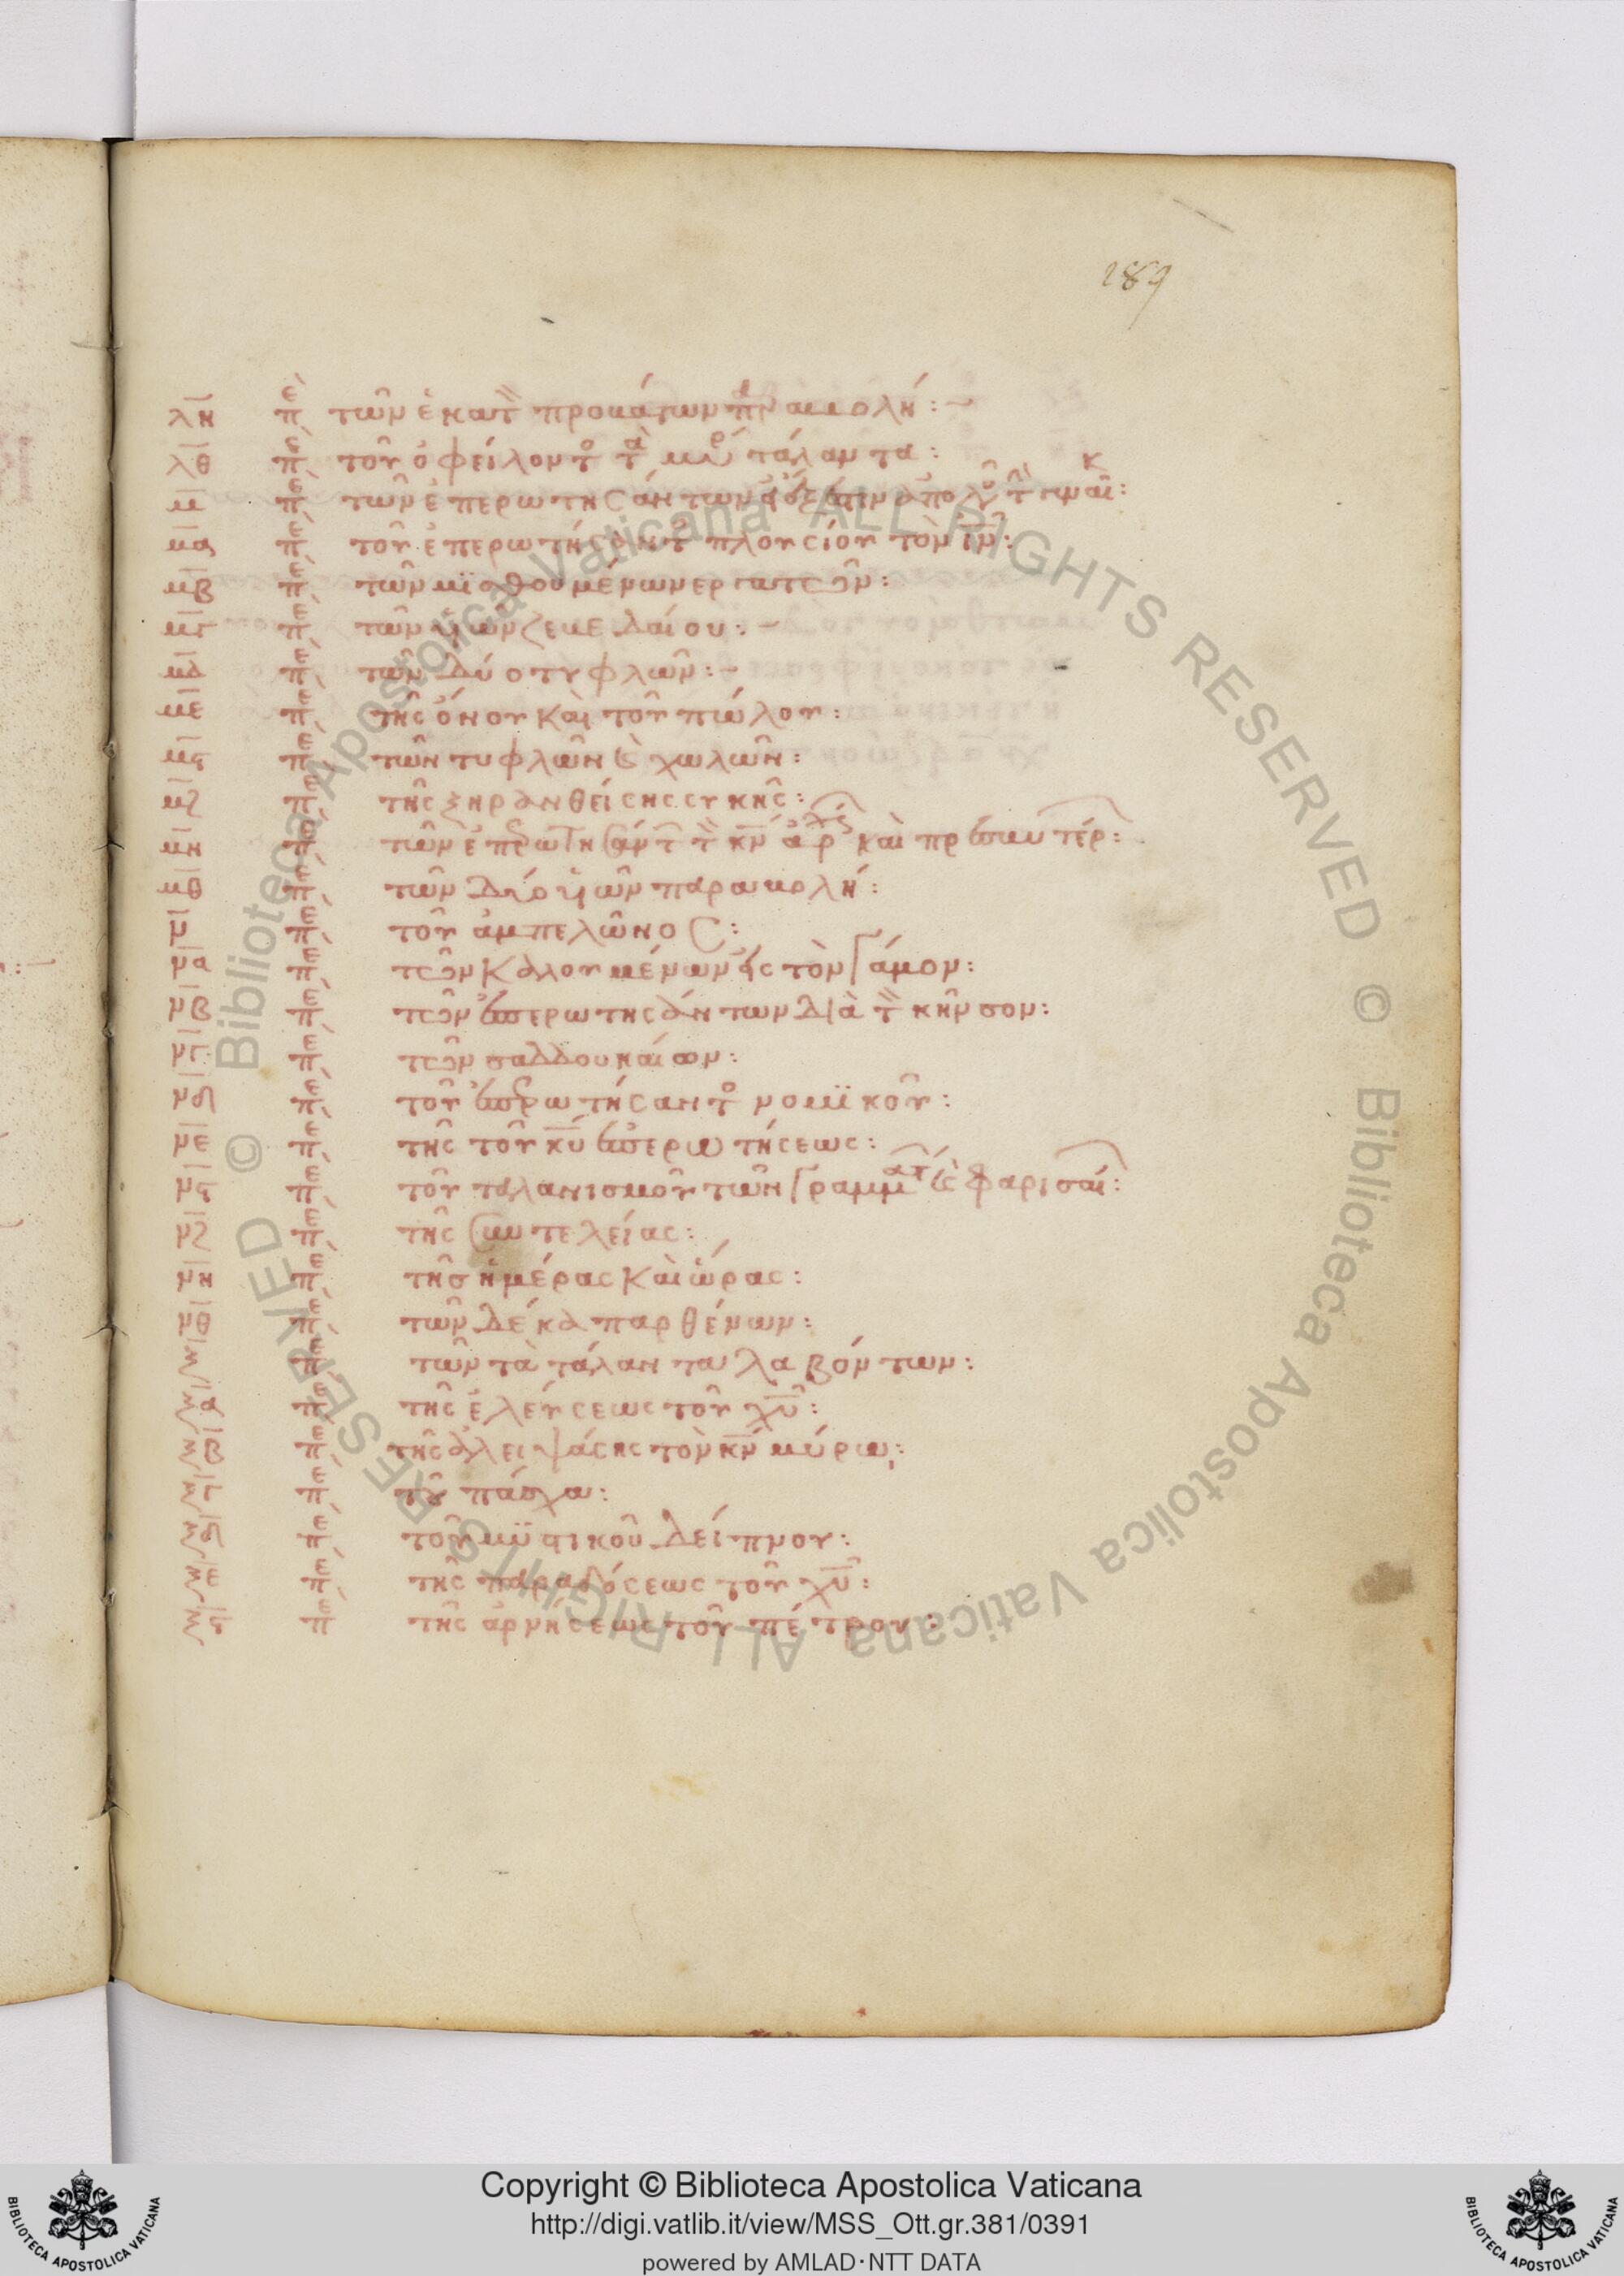 289
λη πε τῶν ἑκατ προβάτων πρ αβολή:
λθ πε τοῦ ὀφείλοντ τα μυρ τάλαντα:
μ πε τῶν ἐπερωτησάντων
μα πε τοῦ ἐπερωτήσαντ πλουσίου τὸν ιν:
μβ πε τῶν μϊσθουμένων εργατῶν:
μγ πε τῶν ϋιῶν ζεβεδαίου:
μδ πε τῶν δύο τυφλῶν:
με πε τῆς ὄνου καὶ τοῦ πώλου:
μϛ πε τῶν τυφλῶν ϗ χωλῶν:
μζ πε τῆς ξηρανθείσης συκῆς:
μη πε τῶν ἐπερωτησάντ τ κν ἀρχ καὶ πρεσβυτέρ:
μθ πε τῶν δύο ϋιῶν παραβολή:
ν πε τοῦ ἀμπελῶνος:
να πε τῶν καλουμένων εἰς τὸν γάμον:
νβ πε τῶν ἐπερωτησάντων διὰ τ κῆνσον:
νγ πε τῶν σαδδουκαίων:
νδ πε τοῦ ἐπερωτήσαντ νομϊκοῦ:
νε πε τῆς τοῦ κυ ἐπερωτήσεως:
νϛ πε τοῦ ταλανισμοῦ τῶν γραμματ ϗ φαρισαί:
νζ πε τῆς συντελείας:
νη πε τῆς ἡμέρας καὶ ὥρας:
νθ πε τῶν δέκα παρθένων:
ξ πε τῶν τὰ τάλαντα λαβόντων:
ξα πε τῆς ἐλεύσεως τοῦ χυ:
ξβ πε τῆς ἀλειψάσης τὸν κν μύρω:
ξγ πε τοῦ πάσχα:
ξδ πε τοῦ μϋστικοῦ δείπνου:
ξε πε τῆς παραδόσεως τοῦ χυ:
ξϛ πε τῆς ἀρνήσεως τοῦ πέτρου:
© Biblioteca Apostolica Vaticana ALL RIGHTS RESERVED © Biblioteca Apostolica Vaticana ALL RIGHTS RESERVED
Copyright © Biblioteca Apostolica Vaticana
http://digi.vatlib.it/view/MSS_Ott.gr.381/0391
powered by AMLAD·NTT DATA
BIBLIOTECA APOSTOLICA VATICANA
BIBLIOTECA APOSTOLICA VATICANA